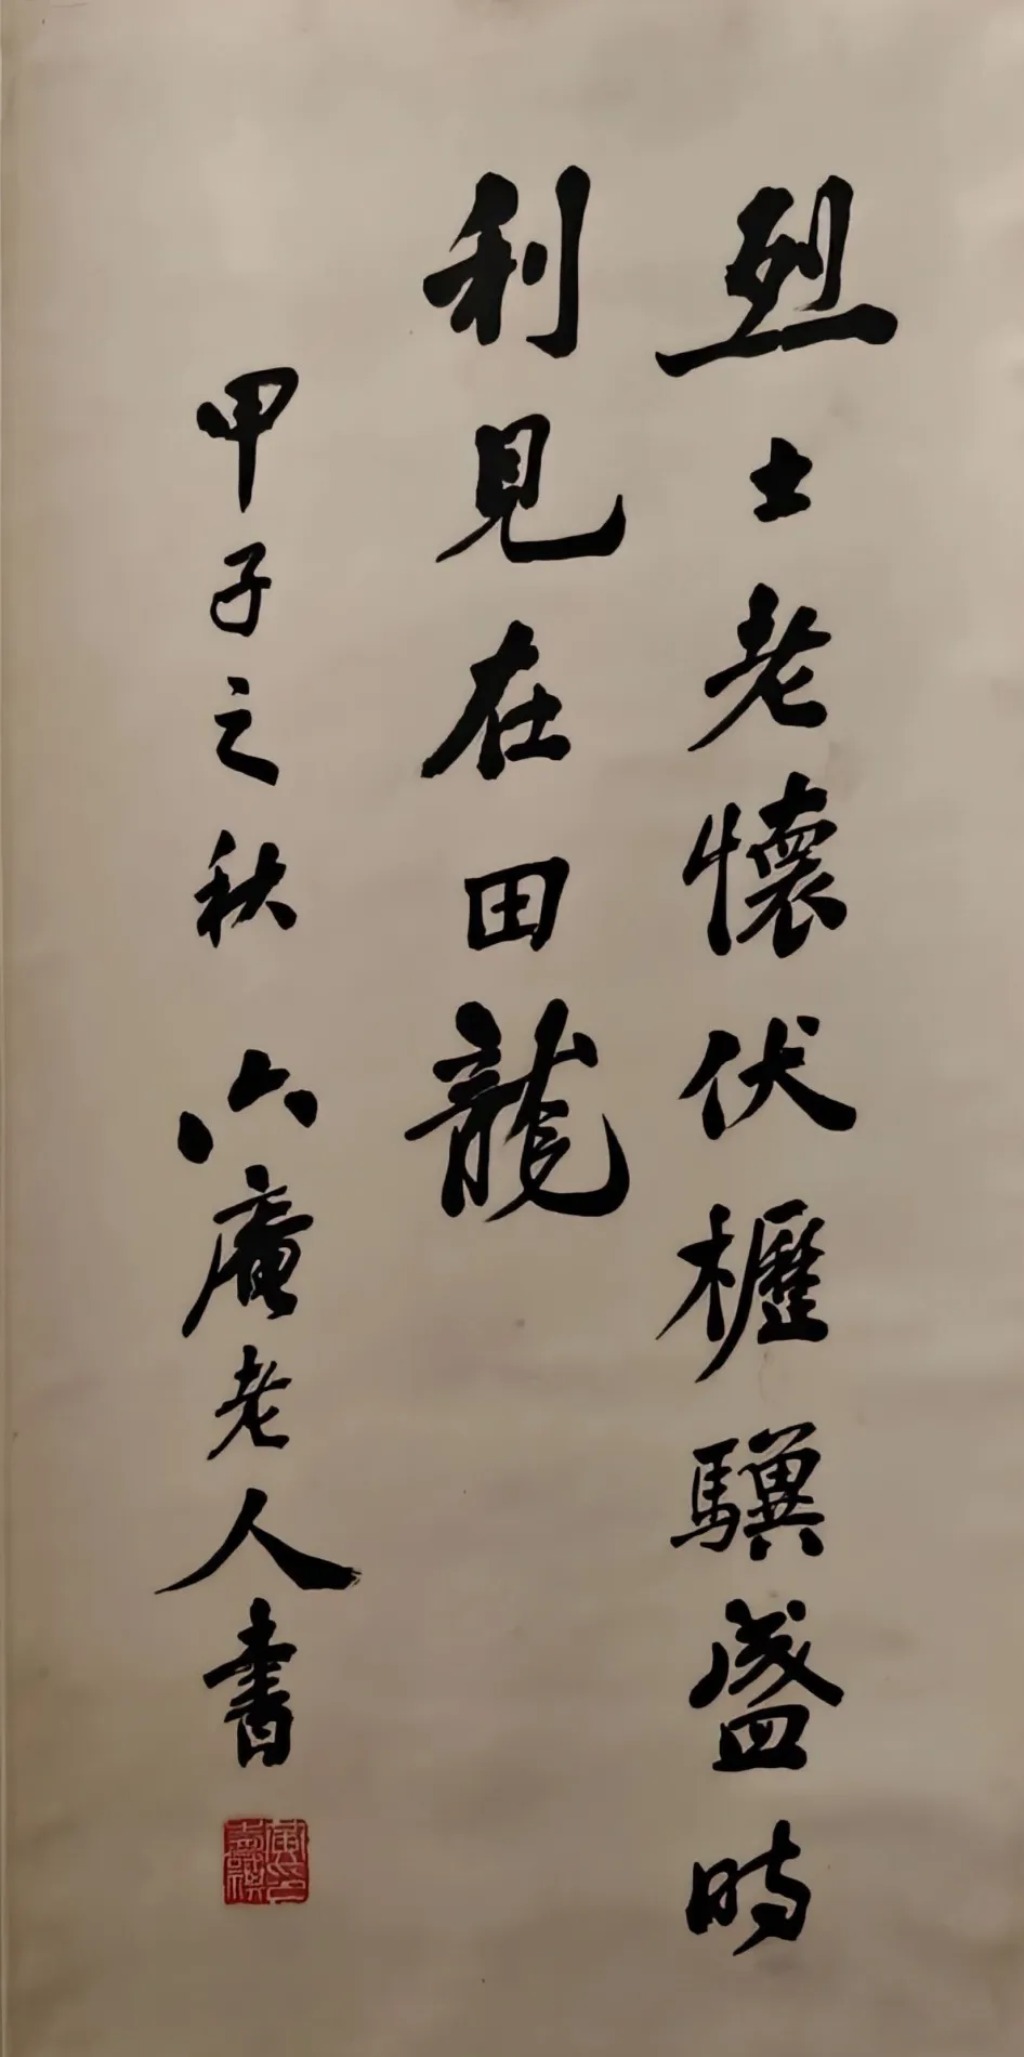 烈士老懷伏櫪驥盛時
利見在田龍
甲子之秋 六庵老人書